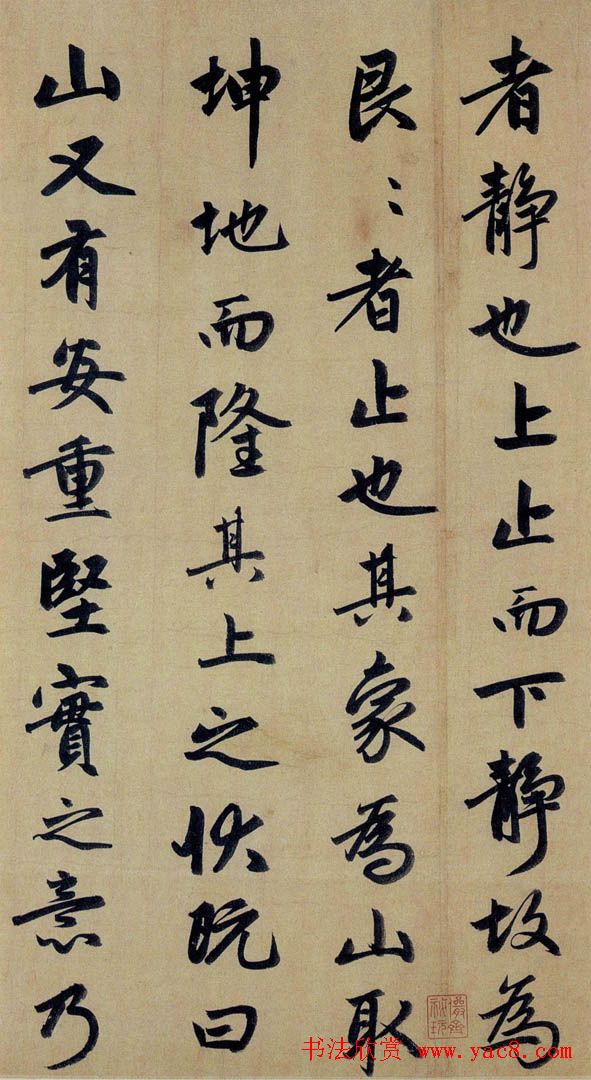 者静也上止而下静故為
艮〻者止也其象為山取
坤地而隆其上之状既曰
山又有安重堅實之意乃
书法欣赏 www.yac8.com